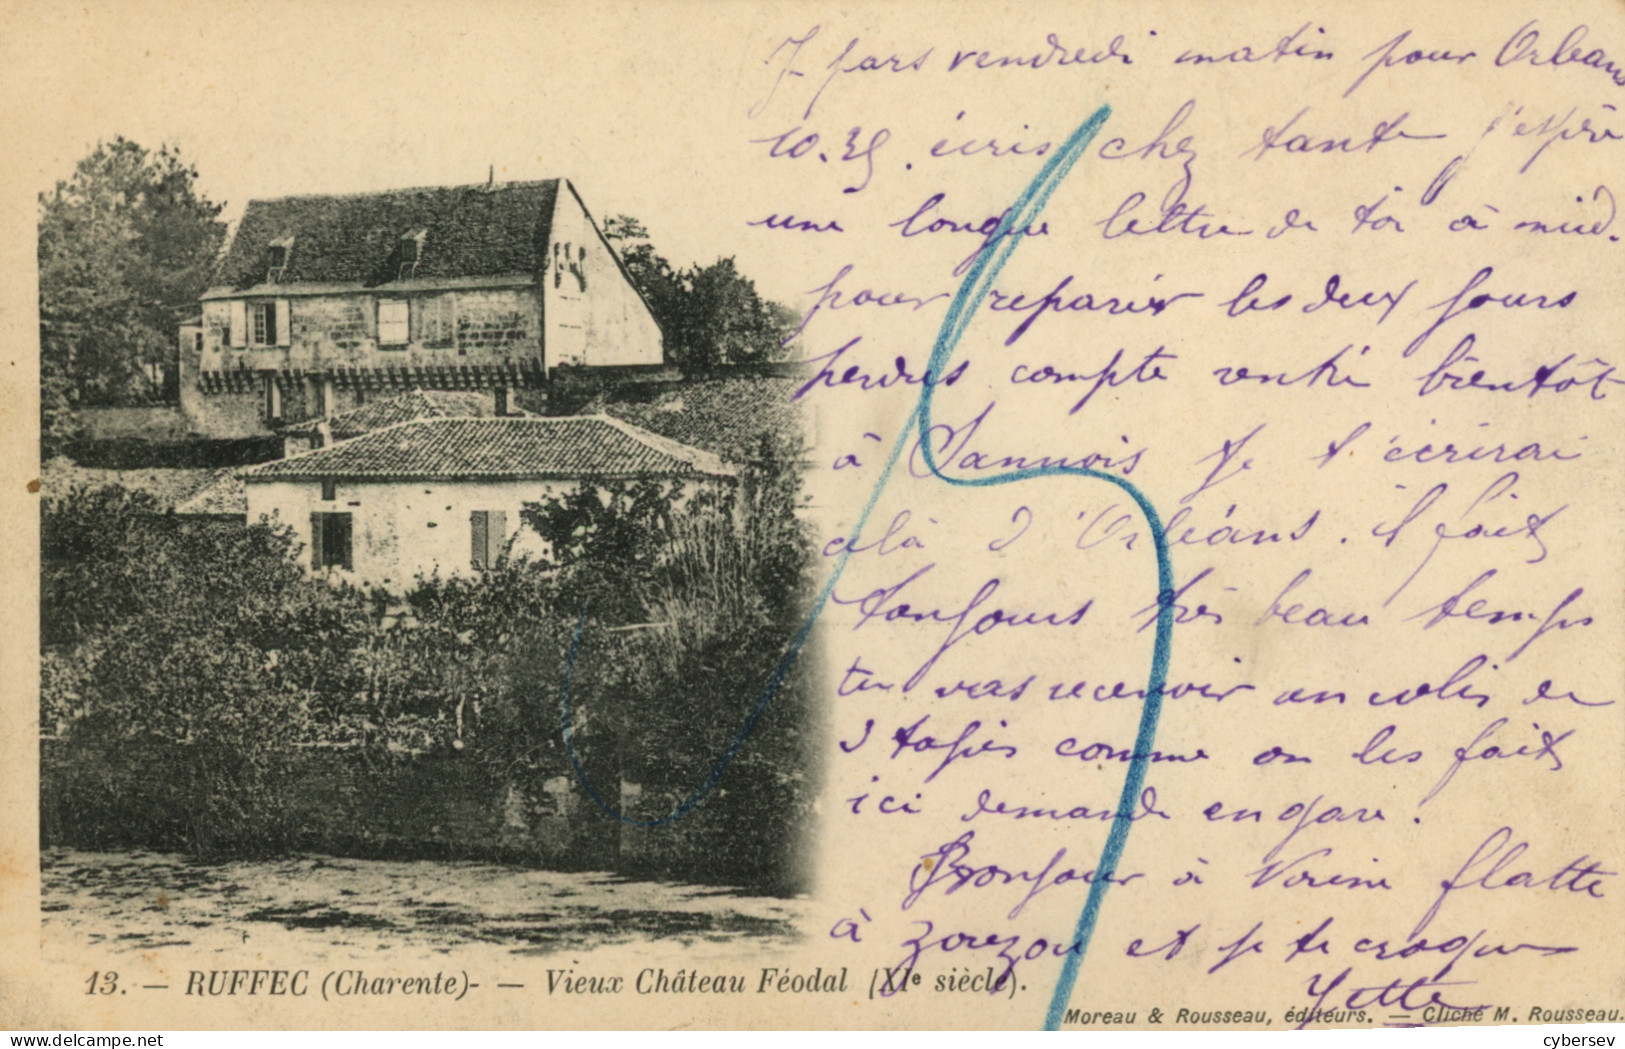 Je pars vendredi matin pour Orléans
10.35. écris chez tante j'espère
une longue lettre de toi à midi.
pour réparer les deux jours
perdus compte rentré bientôt
à Sannois je t'écrirai
celà d'Orléans. il fait
toujours très beau temps
tu vas recevoir un colis de
3 tapis comme on les fait
ici demande en gare.
Bonjour à flatte
à Zouzou et je te croque
Yette
13. — RUFFEC (Charente)- — Vieux Château Féodal (XIe siècle).
Moreau & Rousseau, éditeurs. — Cliché M. Rousseau.
cybersev